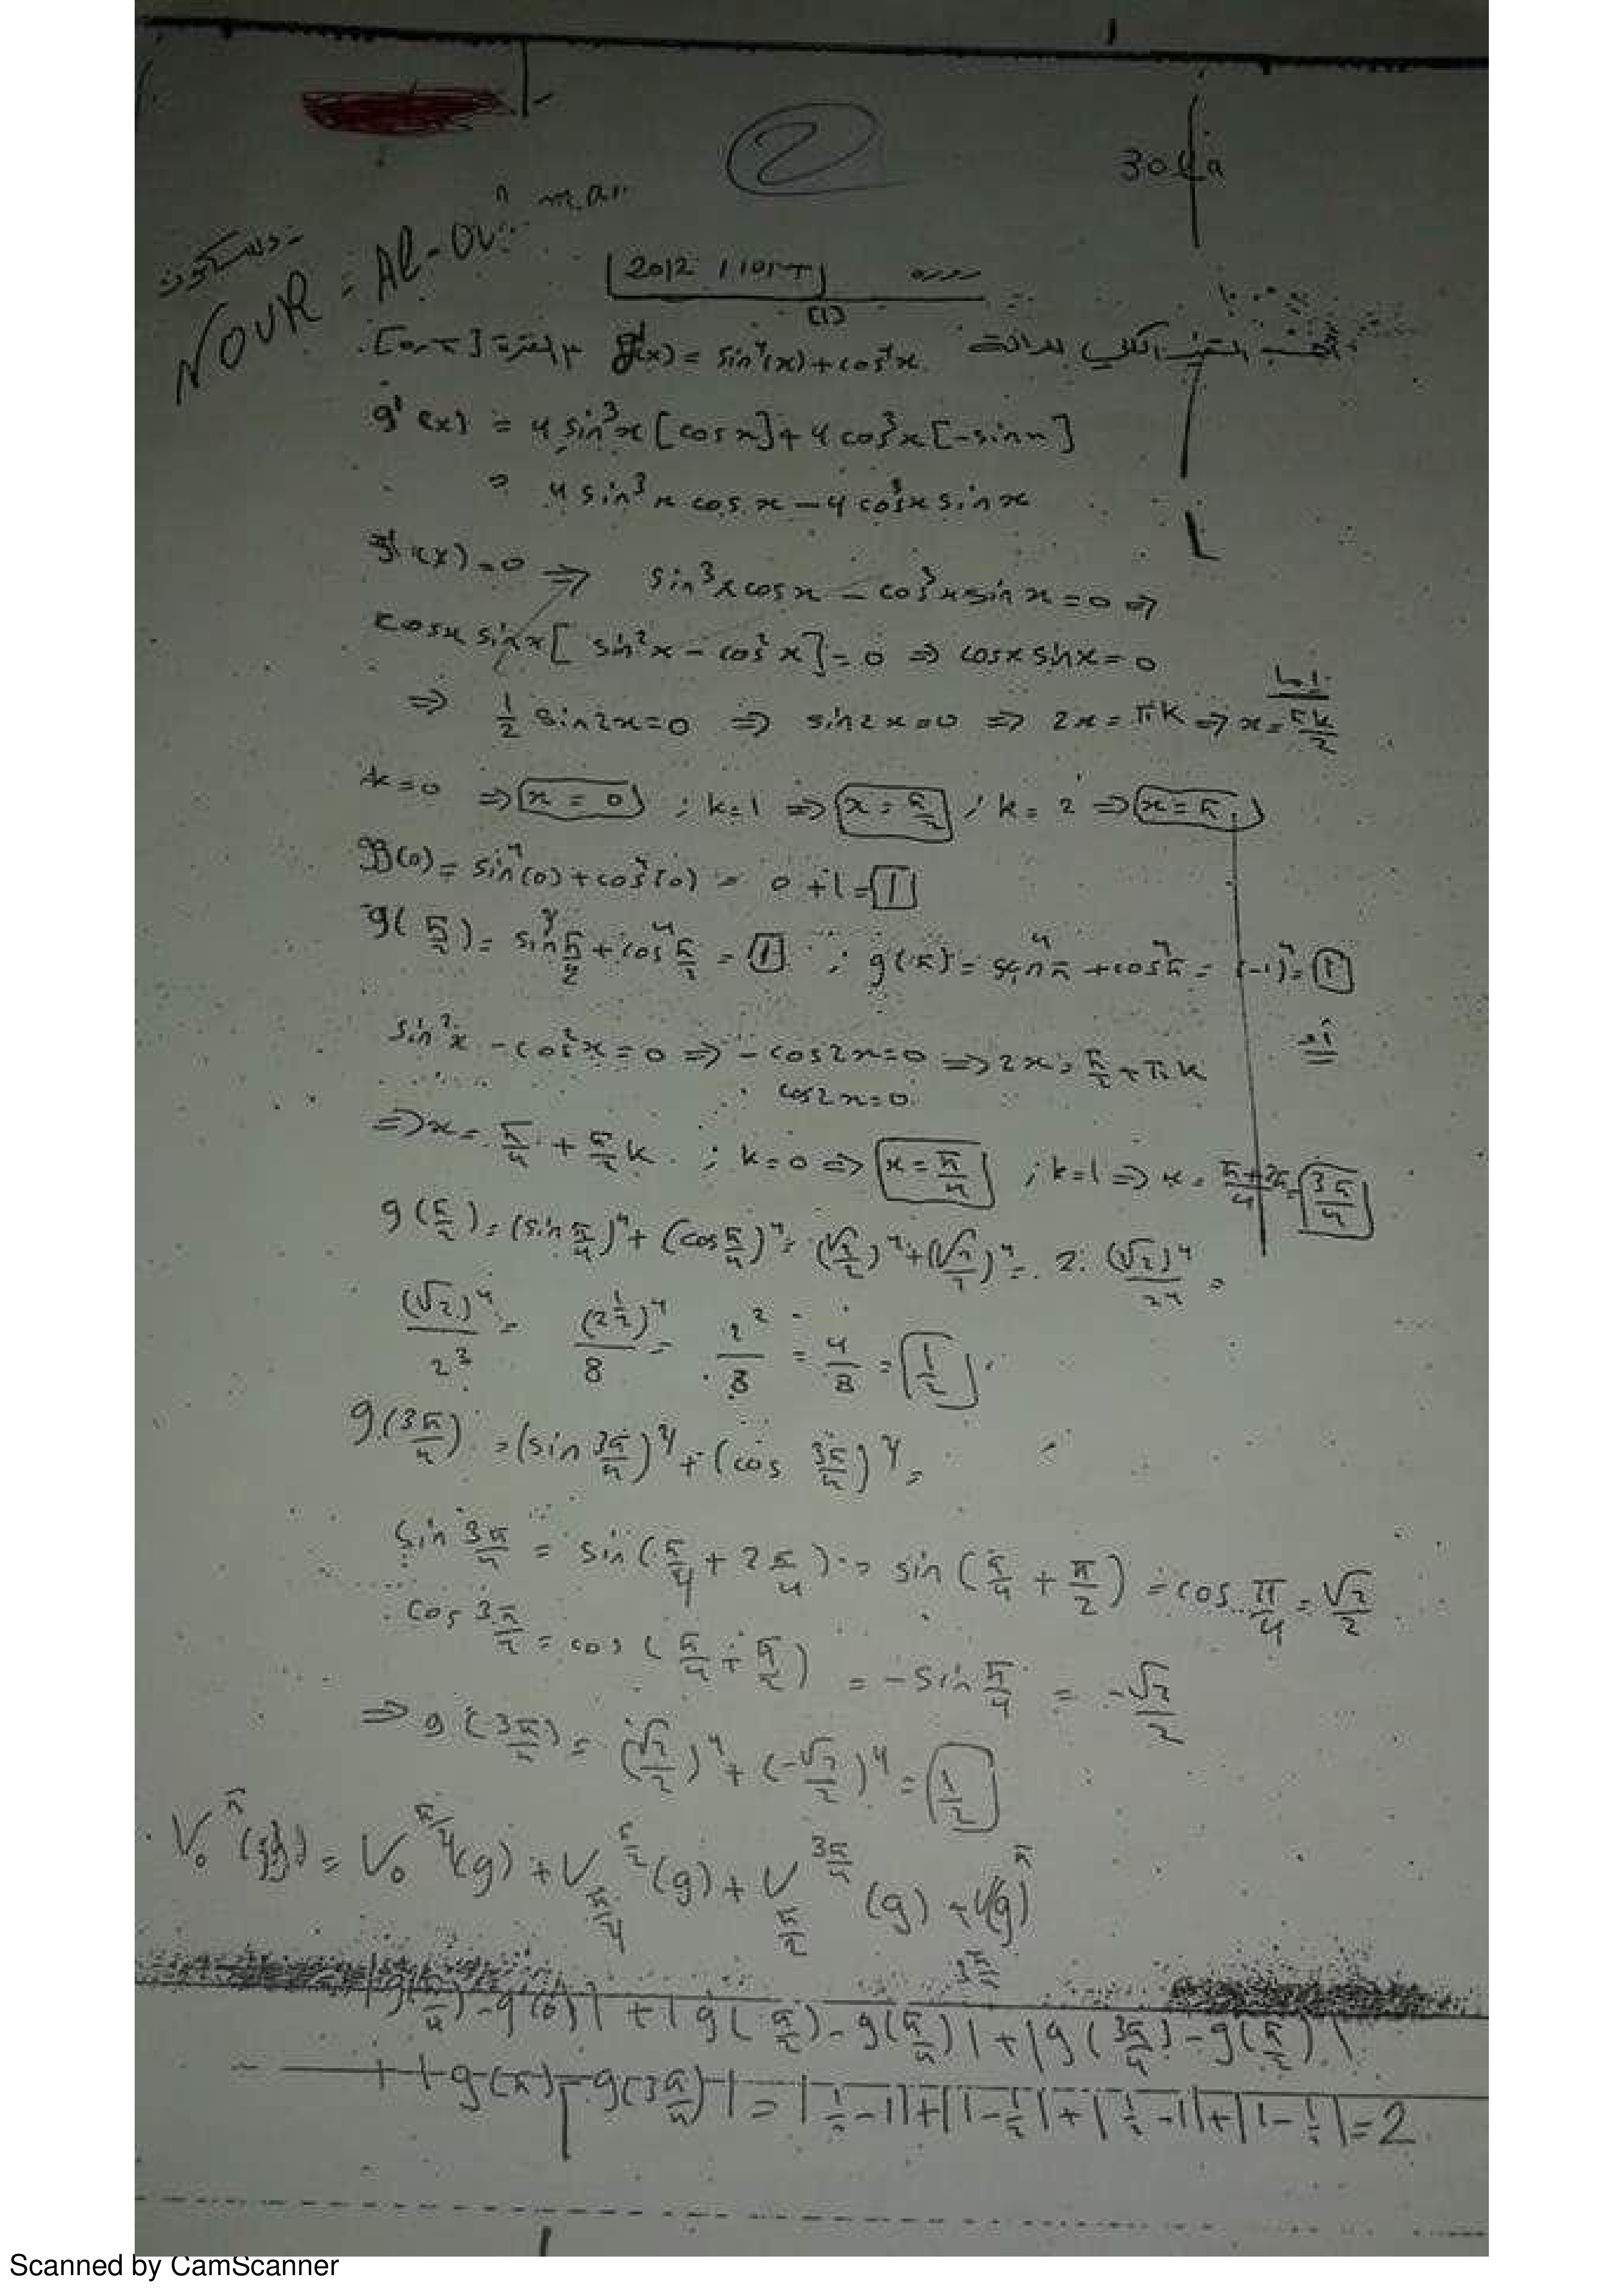 2
304a
NOUR = Al-
2012
(1)
للدالة g(x) = sin⁴(x) + cos⁴x [0, π]
g'(x) = 4 sin³x [cos x] + 4 cos³x [-sin x]
= 4 sin³x cos x - 4 cos³x sin x
g'(x) = 0 ⇒ sin³x cos x - cos³x sin x = 0 ⇒
cos x sin x [sin²x - cos²x] = 0 ⇒ cos x sin x = 0
⇒ 1/2 sin 2x = 0 ⇒ sin 2x = 0 ⇒ 2x = πk ⇒ x = πk/2
k = 0 ⇒ x = 0 ; k = 1 ⇒ x = π/2 ; k = 2 ⇒ x = π
g(0) = sin⁴(0) + cos⁴(0) = 0 + 1 = 1
g(π/2) = sin⁴ π/2 + cos⁴ π/2 = 1 ; g(π) = sin⁴π + cos⁴π = (-1)⁴ = 1
sin²x - cos²x = 0 ⇒ -cos 2x = 0 ⇒ 2x = π/2 + πk
cos 2x = 0
⇒ x = π/4 + π/2 k ; k = 0 ⇒ x = π/4 ; k = 1 ⇒ x = π+2π/4 = 3π/4
g(π/4) = (sin π/4)⁴ + (cos π/4)⁴ = (√2/2)⁴ + (√2/2)⁴ = 2 · (√2)⁴/2⁴ =
(√2)⁴/2³ = (2^½)⁴/8 = 2²/8 = 4/8 = 1/2
g(3π/4) = (sin 3π/4)⁴ + (cos 3π/4)⁴ =
sin 3π/4 = sin(π/4 + 2π/4) = sin(π/4 + π/2) = cos π/4 = √2/2
cos 3π/4 = cos(π/4 + π/2) = -sin π/4 = -√2/2
⇒ g(3π/4) = (√2/2)⁴ + (-√2/2)⁴ = 1/2
V₀^π(g) = V₀^π/4(g) + V_π/4^π/2(g) + V_π/2^3π/4(g) + V_3π/4^π(g)
|g(π/4) - g(0)| + |g(π/2) - g(π/4)| + |g(3π/4) - g(π/2)|
+ |g(π) - g(3π/4)| = |1/2 - 1| + |1 - 1/2| + |1/2 - 1| + |1 - 1/2| = 2
Scanned by CamScanner